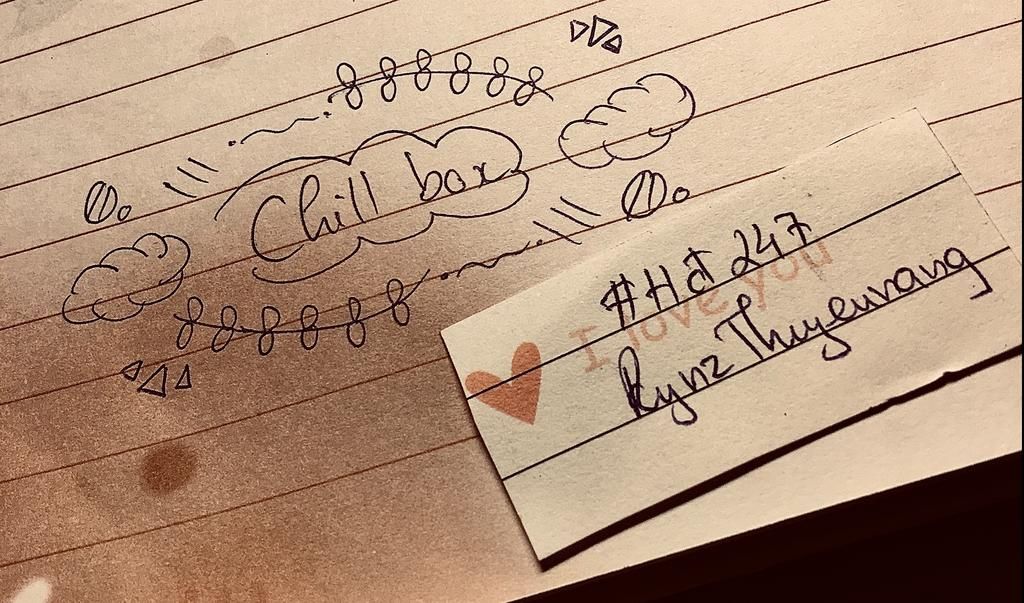 Chill box
#Hđ 247
I love you
Rynz Thuyeunang